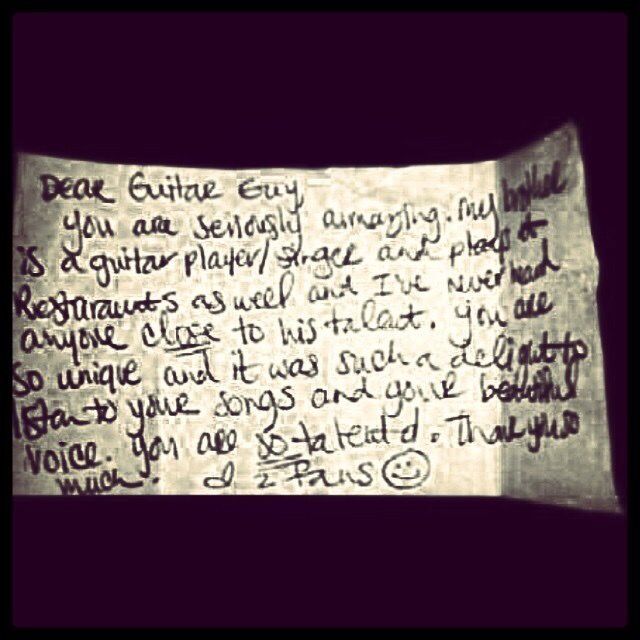 Dear Guitar Guy
You are seriously amazing. My brother
is a guitar player/singer and plays at
Restaraunts as well and I've never heard
anyone close to his talent. You are
so unique and it was such a delight to
listen to your songs and your beautiful
voice. You are so talent'd. Thank you so
much. 2 Fans